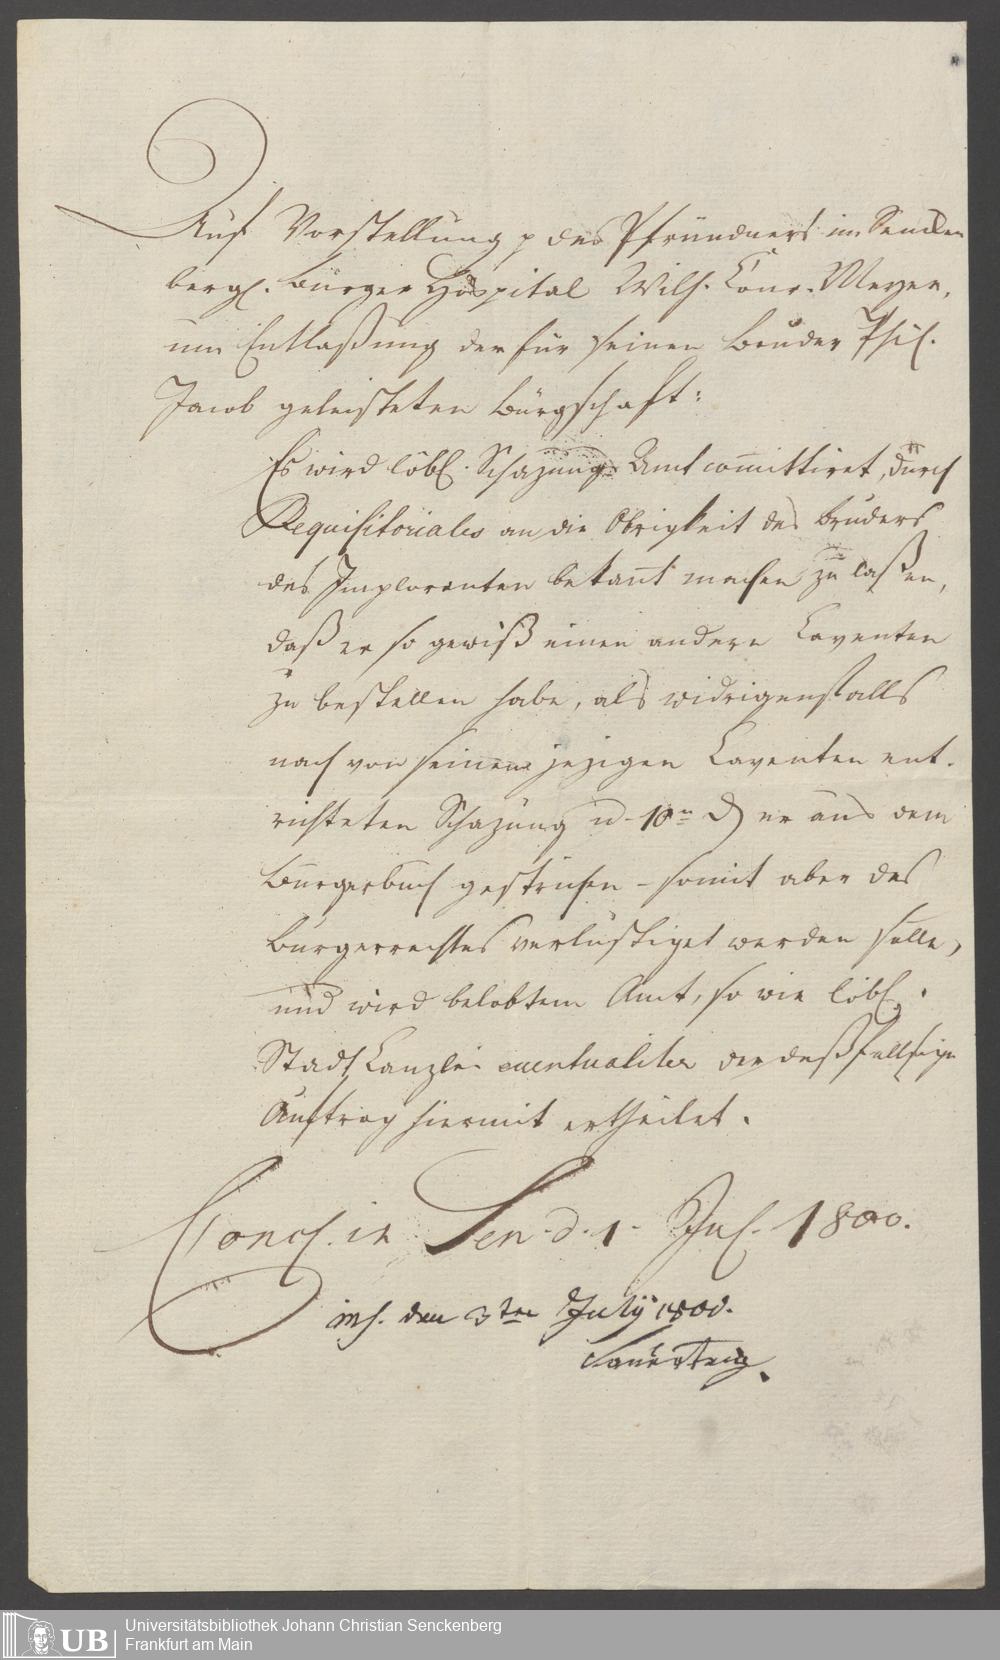 Auf Vorstellung p des Pfründners im Sencken
bergl. Bürger Hospital Wilh. Conr. Meyer,
um Entlaßung der für seinen Bruder Phil.
Jacob geleisteten Bürgschaft:
Es wird löbl. Schazungs Amt com̅ittiret, durch
Requisitoriales an die Obrigkeit des Bruders
des Imploranten bekan̅t machen zu laßen,
daß er so gewiß einen andern Caventen
zu bestellen habe, als widrigenfalls
nach von seinem jezigen Caventen ent-
richteten Schazung u. 10n ₰ er aus dem
Burgerbuch gestrichen - somit aber des
Bürgerrechtes verlustiget werden solle,
und wird belobtem Amt, so wie löbl.
Stadt Canzlei eventualiter der deßfallsige
Auftrag hiermit ertheilet.
Concl. in Sen. d. 1. Jul. 1800.
ins. den 3ten July 1800.
Sauerteig
Universitätsbibliothek Johann Christian Senckenberg
Frankfurt am Main
UB